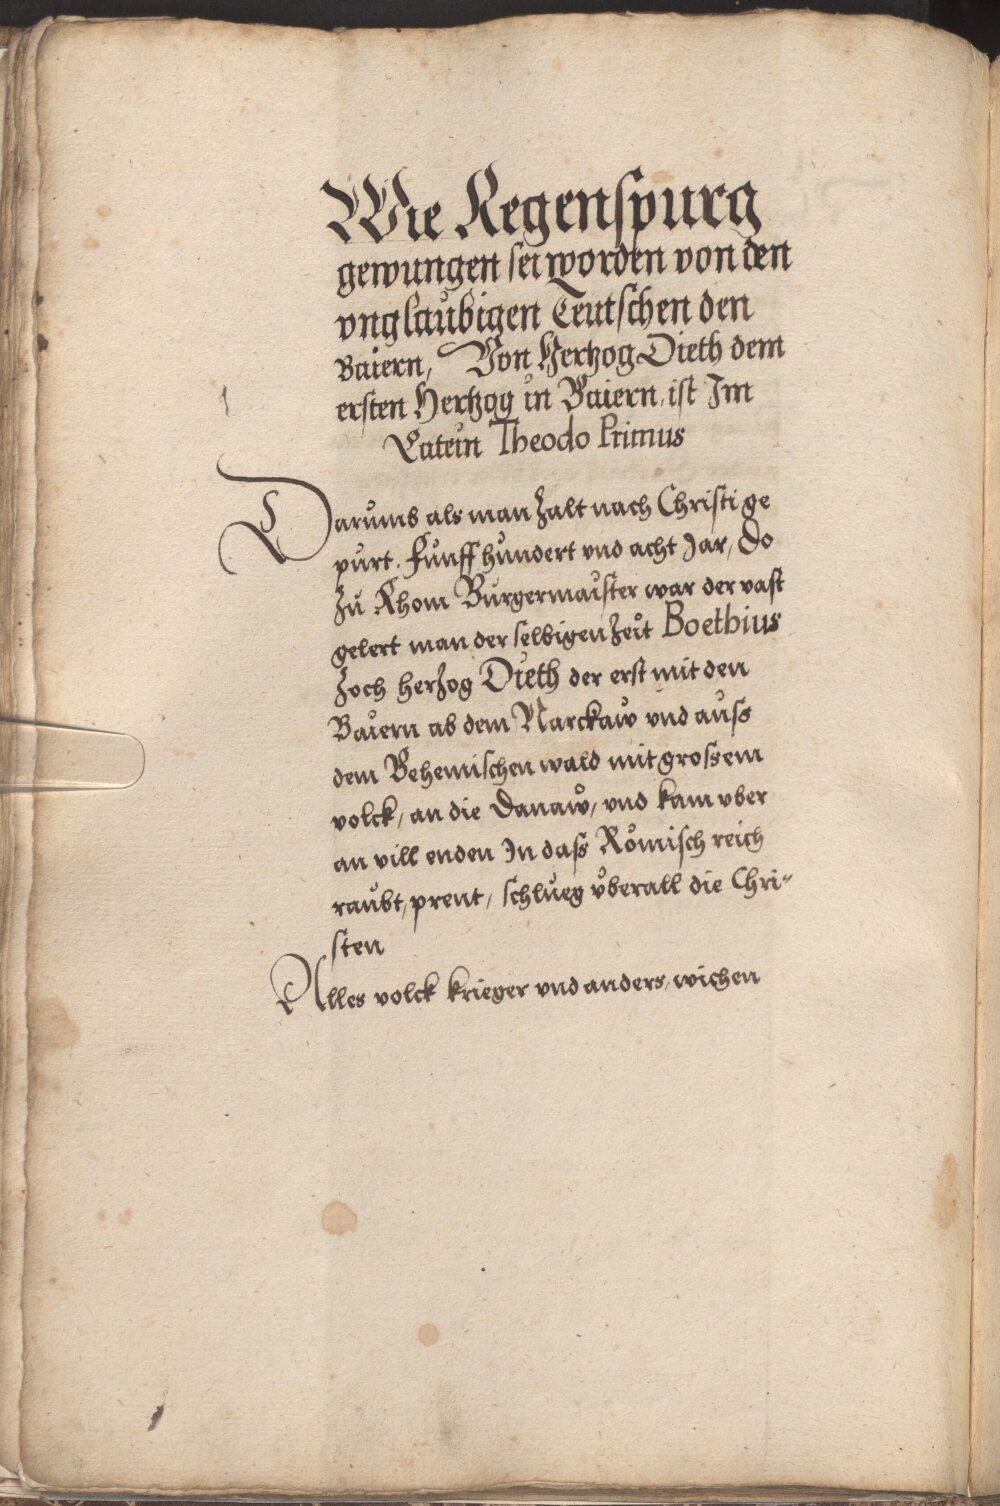 Wie Regenspurg
gewungen sei worden von den
vnglaubigen Teutschen den
Baiern, Von Hertzog Dieth dem
ersten Hertzog in Baiern, ist Im
Latein Theodo Primus
Darumb als man zalt nach Christi ge
purt. Funff hundert vnd acht Jar, Do
zu Rhom Burgermaister war der vast
gelert man der selbigen zeit Boethius
zoch herzog Dieth der erst mit den
Baiern ab dem Narckaw vnd auss
dem Behemischen wald mit grossem
volck, an die Danaw, vnd kam vber
an vill enden In dass Römisch reich
raubt, prent, schlueg vberall die Chri-
sten
Alles volck krieger vnd anders, wichen